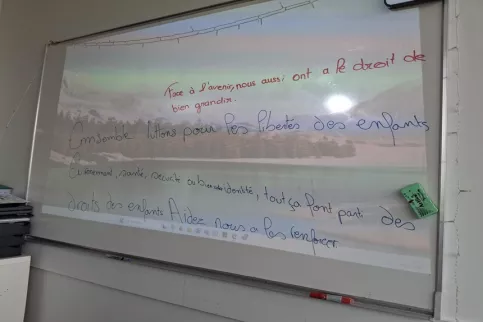 Face à l'avenir, nous aussi ont a le droit de
bien grandir.
Ensemble luttons pour les libertés des enfants
santé, sécurité ou bien identité, tout ça font part des
droits des enfants Aidez nous a les renforcer